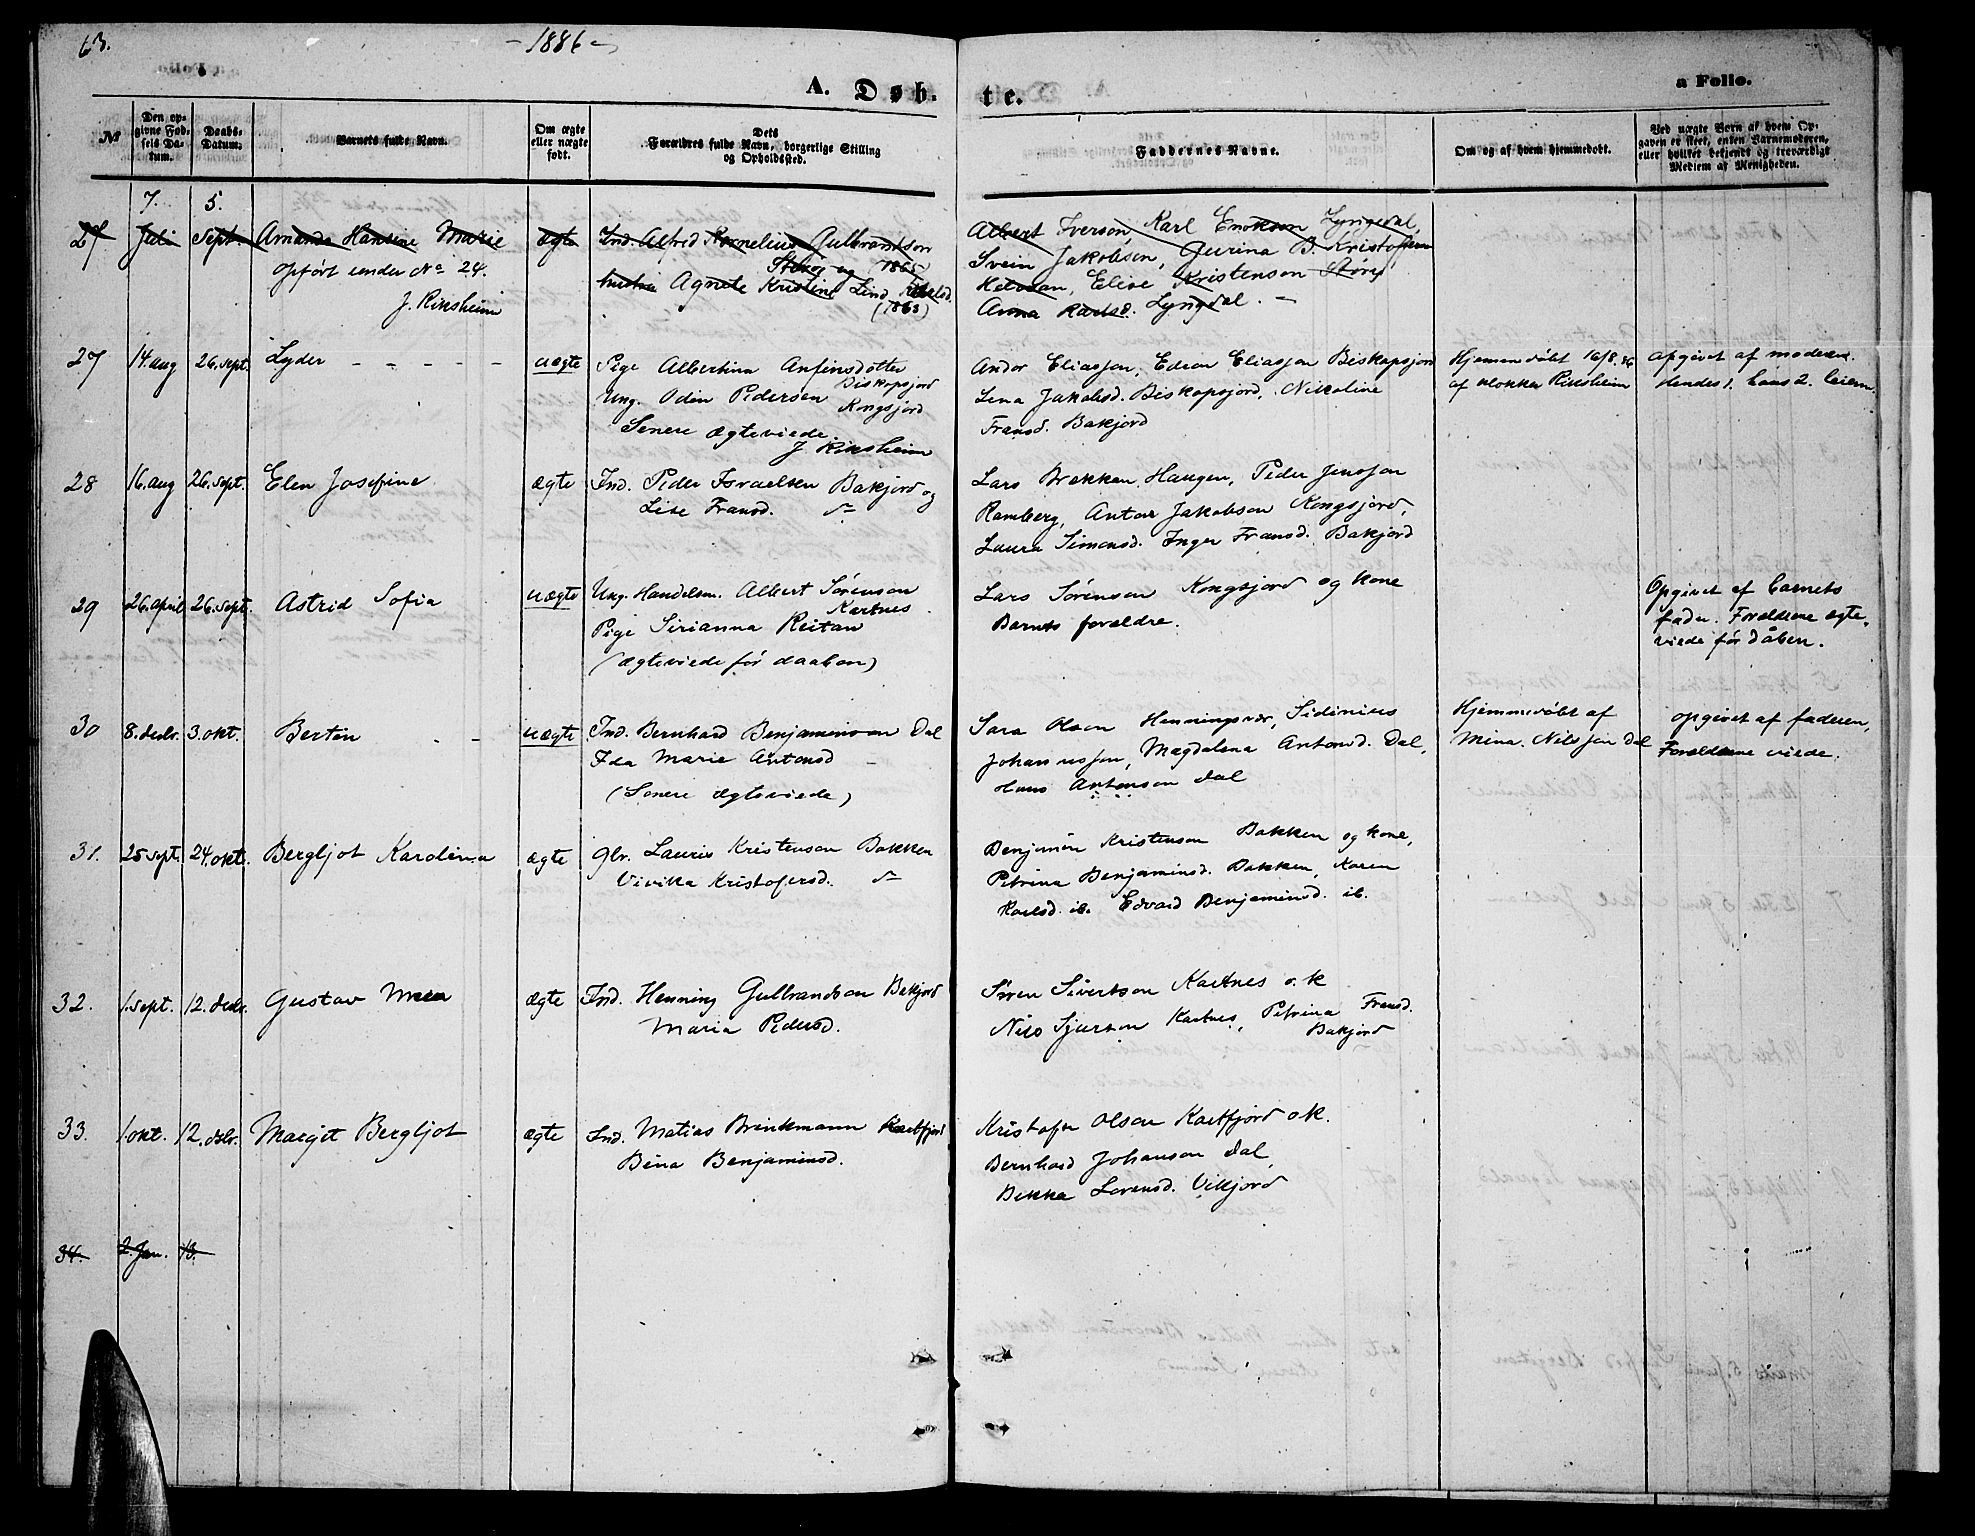 63.
-1886-
A. Døb-
te.
a Folio.
№
Den op-
givne Fød-
sels Da-
tum.
Daabs-
Datum.
Barnets fulde Navn.
Om ægte
eller uægte
født.
Dets
Forældres fulde Navn, borgerlige Stilling
og Opholdssted.
Faddernes Navne.
Om og af hvem hjemmedøbt.
Ved uægte Børn af hvem Op-
gaven er skeet, enten Barnemoderen,
eller hvilket bekjendt og troværdigt
Medlem af Menigheden.
7. 5.
27 Juli Sept. Amanda Hansine Marie ægte Ind. Alfred Kornelius Gulbrandson
opført under No 24. Støvø og (1865)
J. Riksheim
hustru Agnete Kristine Lind
(1863)
Albert Iverson, Karl Enokson Lyngedal,
Svein Jakobsen, Gurina B. Kristofersen
Elise Kristenson Støvø
Anna Karlsd. Lyngdal. -
27 14. aug 26. sept. Lyder - - - - uægte Pige Albertina Anfinsdotter
Biskopsjord
Ung. Odin Pedersen Kongsjord
Senere ægteviede.
J Riksheim
Andor Eliassen, Edeon Eliassen Biskopsjord
Lina Jakobsd. Biskopsjord, Nikoline
Fransd. Bakjord
Hjemmedøbt 16/8.86
af klokker Riksheim
opgivet af moderen.
Hendes 1. hans 2. leierm.
28 16. aug 26. sept. Elen Josefine ægte Ind. Peder Israelsen Bakjord og
Lise Fransd.
Lars Brekken Haugen, Peder Jensson
Ramberg, Anton Jakobson Kongsjord,
Laura Simonsd. Inger Fransd. Bakjord
29 26. april 26. sept. Astrid Sofia uægte Ung. Handelsm. Albert Sørenson
Kartnes.
Pige Sirianna Reitan
(ægteviede før daaben)
Lars Sørenson Kongsjord og kone
Barnets forældre.
Opgivet af barnets
fader. Forældrene ægte-
viede før dåben.
30 8. decbr. 3. okt. Bertin - - uægte Ind. Bernhard Benjaminson Dal
Ida Marie Antonsd -
(Senere ægteviede)
Sara Olsen Henningsvær, Sidinius
Johannessen, Magdalena Antonsd. Dal,
Hans Antonson Dal
Hjemmedøbt af
Mina. Nilssen Dal
opgivet af faderen,
Forældrene viede.
31. 25 sept. 24. okt. Bergljot Karolina ægte gbr. Lauris Kristenson Bakken
Vivika Kristofersd.
Benjamin Kristenson Bakken og kone,
Petrina Benjaminsd. Bakken, Karen
Karlsd. ib. Edvard Benjaminsd. ib.
32. 1. sept. 12. decbr. Gustav ægte Ind. Henning Gulbrandson Bakjord
Maria Pedersd.
Søren Sivertson Kartnes o.k
Nils Sjurson Kartnes, Petrina Fransd.
Bakjord
33. 1. okt. 12. dcbr. Margit Bergljot ægte Ind. Matias Brinkmann Kartfjord
Bina Benjaminsd.
Kristofer Olson Kartfjord o.k.
Bernhard Johanson Dal,
Bekka Lorensd. Vikjord
34. 2. Jan. 13.